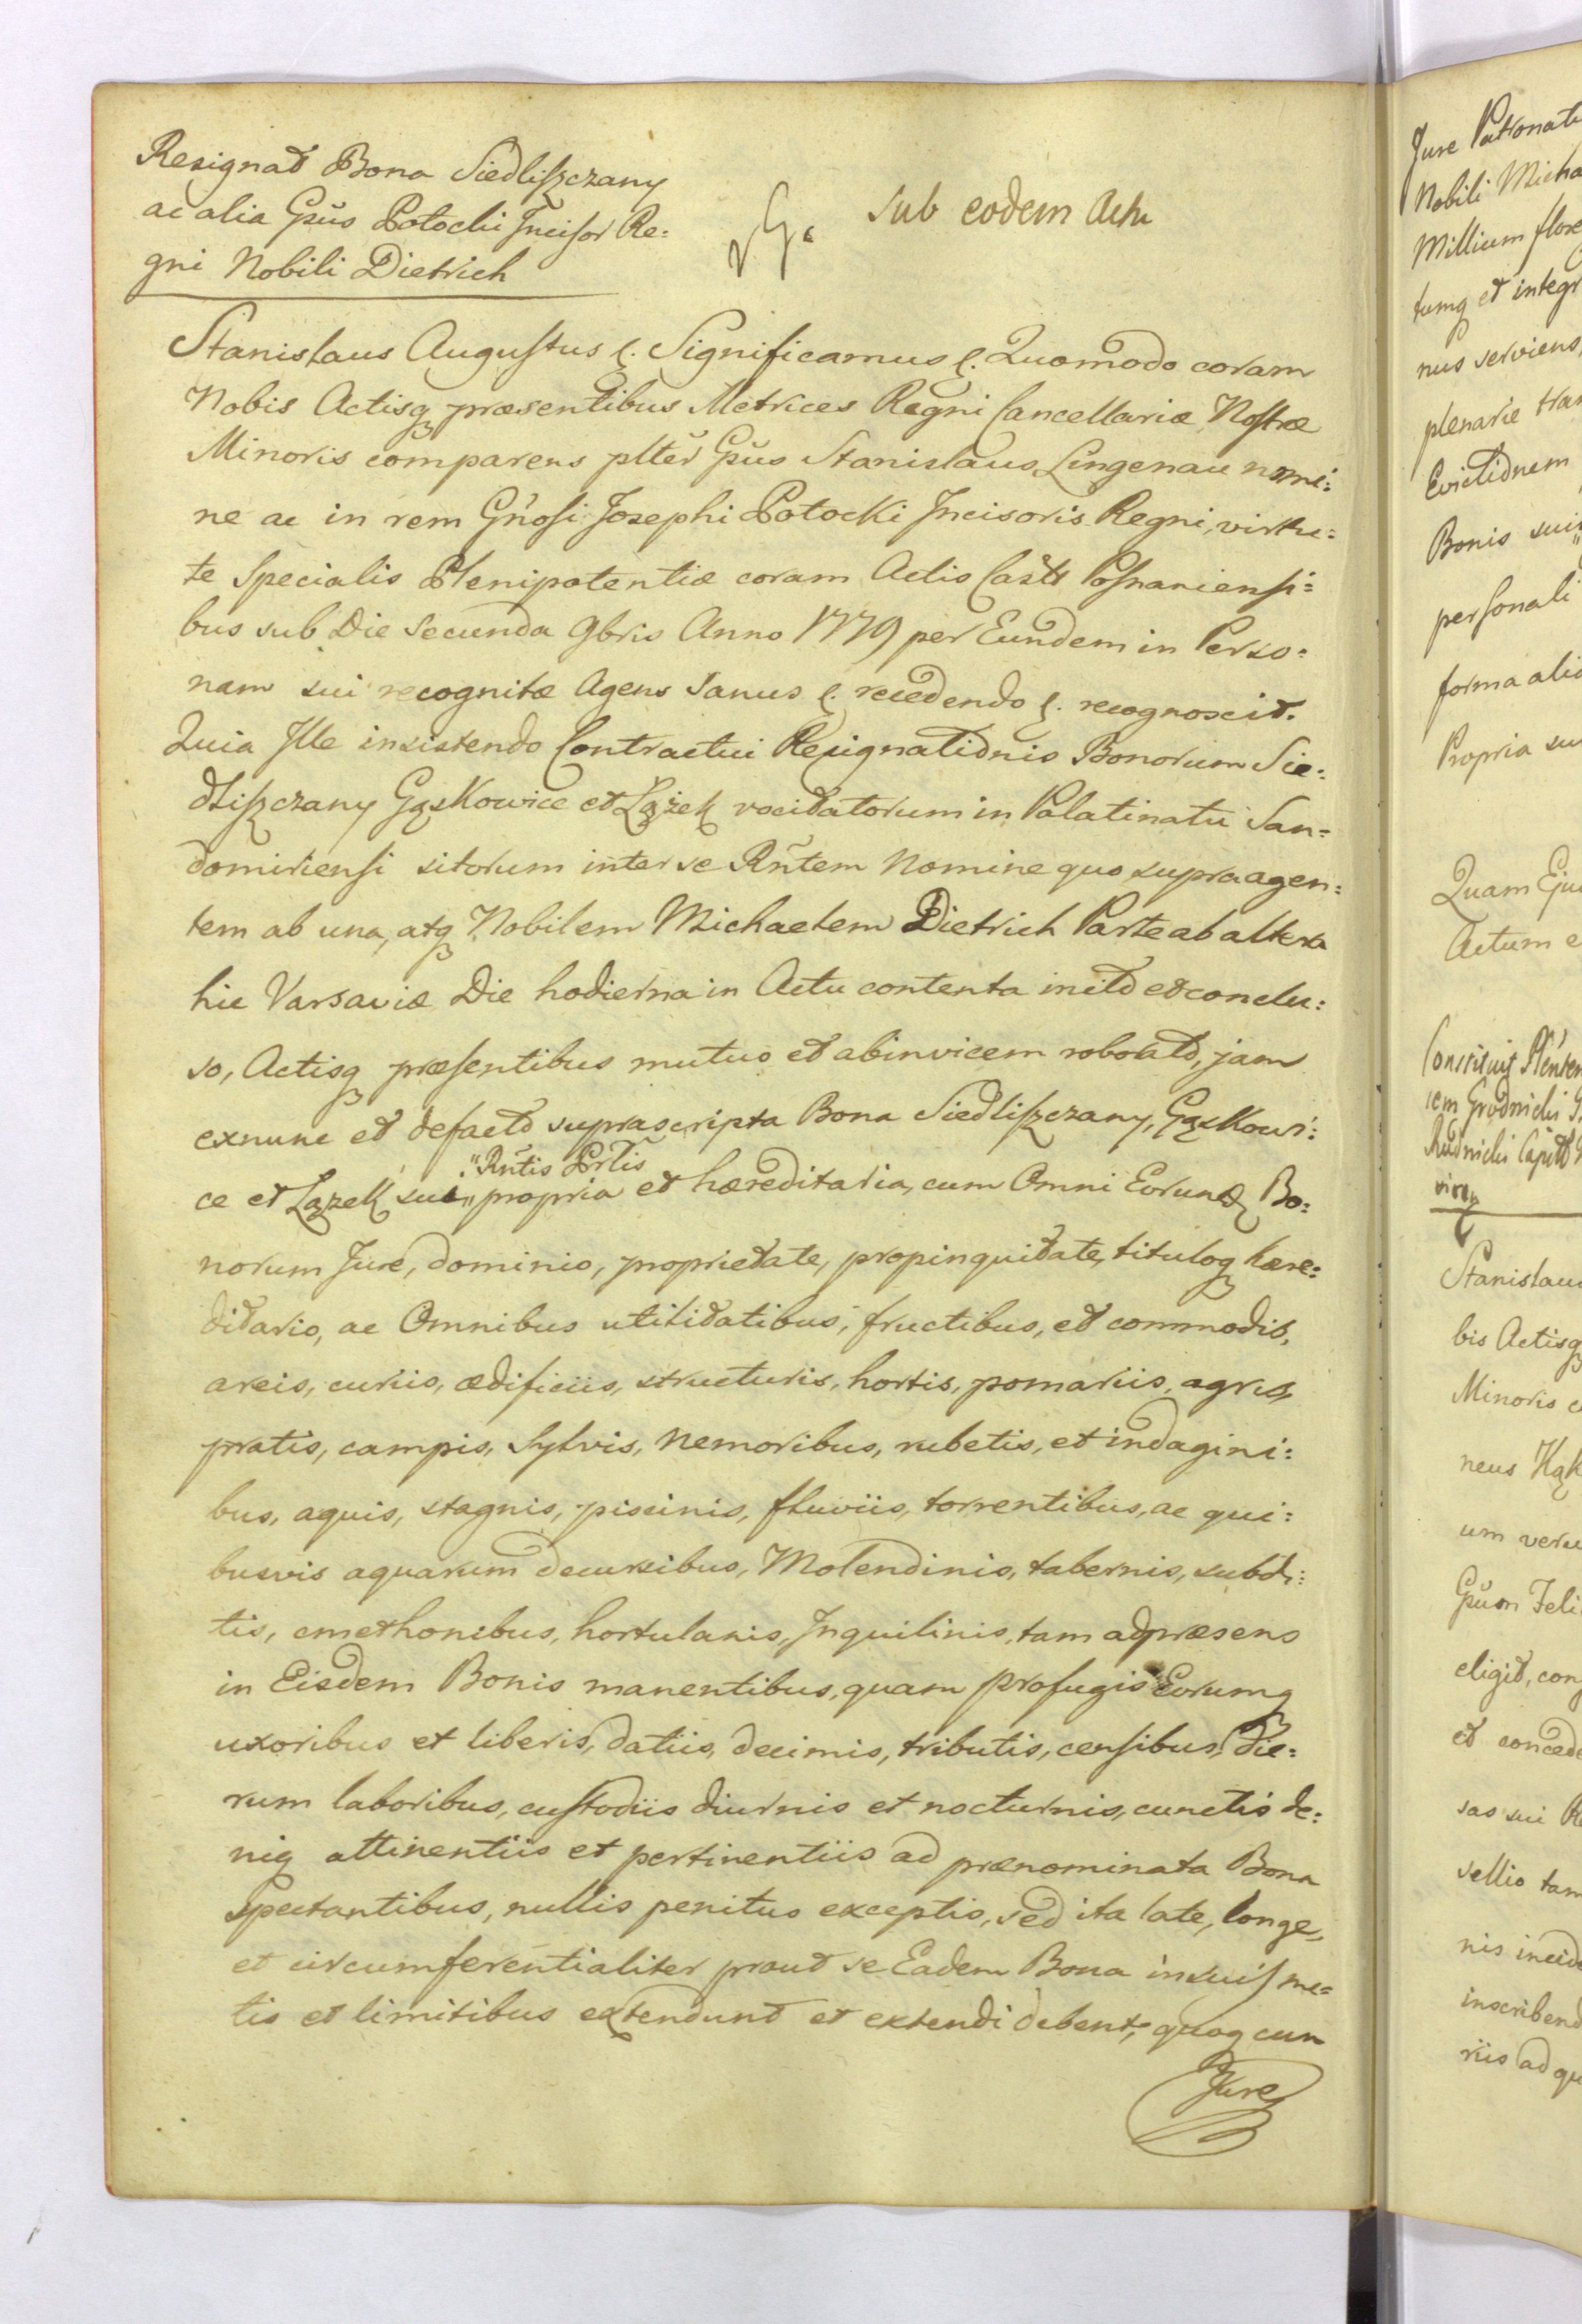 Resignat Bona Siedliszczany
ac alia Gsus Potocki Incisor Re:
gni Nobili Dietrich
sub eodem Actu
Stanislaus Augustus &. Significamus &. Quomodo coram
Nobis Actisq præsentibus Metrices Regni Cancellariæ Nostræ
Minoris comparens plter Gsus Stanislaus Lingenau nomi:
ne ac in rem Gnosi Josephi Potocki Incisoris Regni, virtu:
te Specialis Plenipotentiæ coram Actis Castr Posnaniensi:
bus sub Die Secunda 9bris Anno 1779 per Eundem in Perso:
nam sui recognitæ Agens Sanus &. recedendo &. recognoscit.
Quia Ille insistendo Contractui Resignationis Bonorum Sie:
dliszczany Gąskowice et Lążek vocitatorum in Palatinatu San:
domiriensi sitorum inter se Rntem Nomine quo supra agen:
tem ab una, atq Nobilem Michaelem Dietrich Parte ab altera
hic Varsaviæ Die hodierna in Actu contenta inito et conclu:
so, Actisq præsentibus mutuo et abinvicem roborato, jam
exnunc et defacto suprascripta Bona Siedliszczany, Gąskowi:
"Rntis Prlis
ce et Lązek sua" propria et hæreditaria, cum Omni Eorund Bo:
norum Jure, dominio, proprietate, propinquitate, tituloq hære:
ditario, ac Omnibus utilitatibus, fructibus, et commodis,
areis, curiis, ædificiis, structuris, hortis, pomariis, agris,
pratis, campis, Sylvis, Nemoribus, rubetis, et indagini:
bus, aquis, stagnis, piscinis, fluviis, torrentibus, ac qui:
busvis aquarum decursibus, Molendinis, tabernis, subdi:
tis, cmethonibus, hortulanis, Inquilinis, tam adpræsens
in Eisdem Bonis manentibus, quam profugis Eorumq
uxoribus et liberis, datiis, decimis, tributis, censibus, die:
rum laboribus, custodiis diurnis et nocturnis, cunctis de:
niq attinentiis et pertinentiis ad prænominata Bona
spectantibus, nullis penitus exceptis, sed ita late, longe,
et circumferentialiter prout se Eadem Bona in suis me=
tis et limitibus extendunt et extendi debent, quoq cum
Jure
Jure Patronatu
Nobili Micha
Millium flore
tumq et integr
nus serviens,
plenarie tran
Evictionem
Bonis suis
personali
forma alio
Propria su
Quam Eju
Actum e
Stanislaus
bis Actisq
Minoris c
neus Kąk
um veru
Gsum Feli
eligit, con
et concede
sas sui R
sellis tam
nis incid
inscribend
riis ad qu